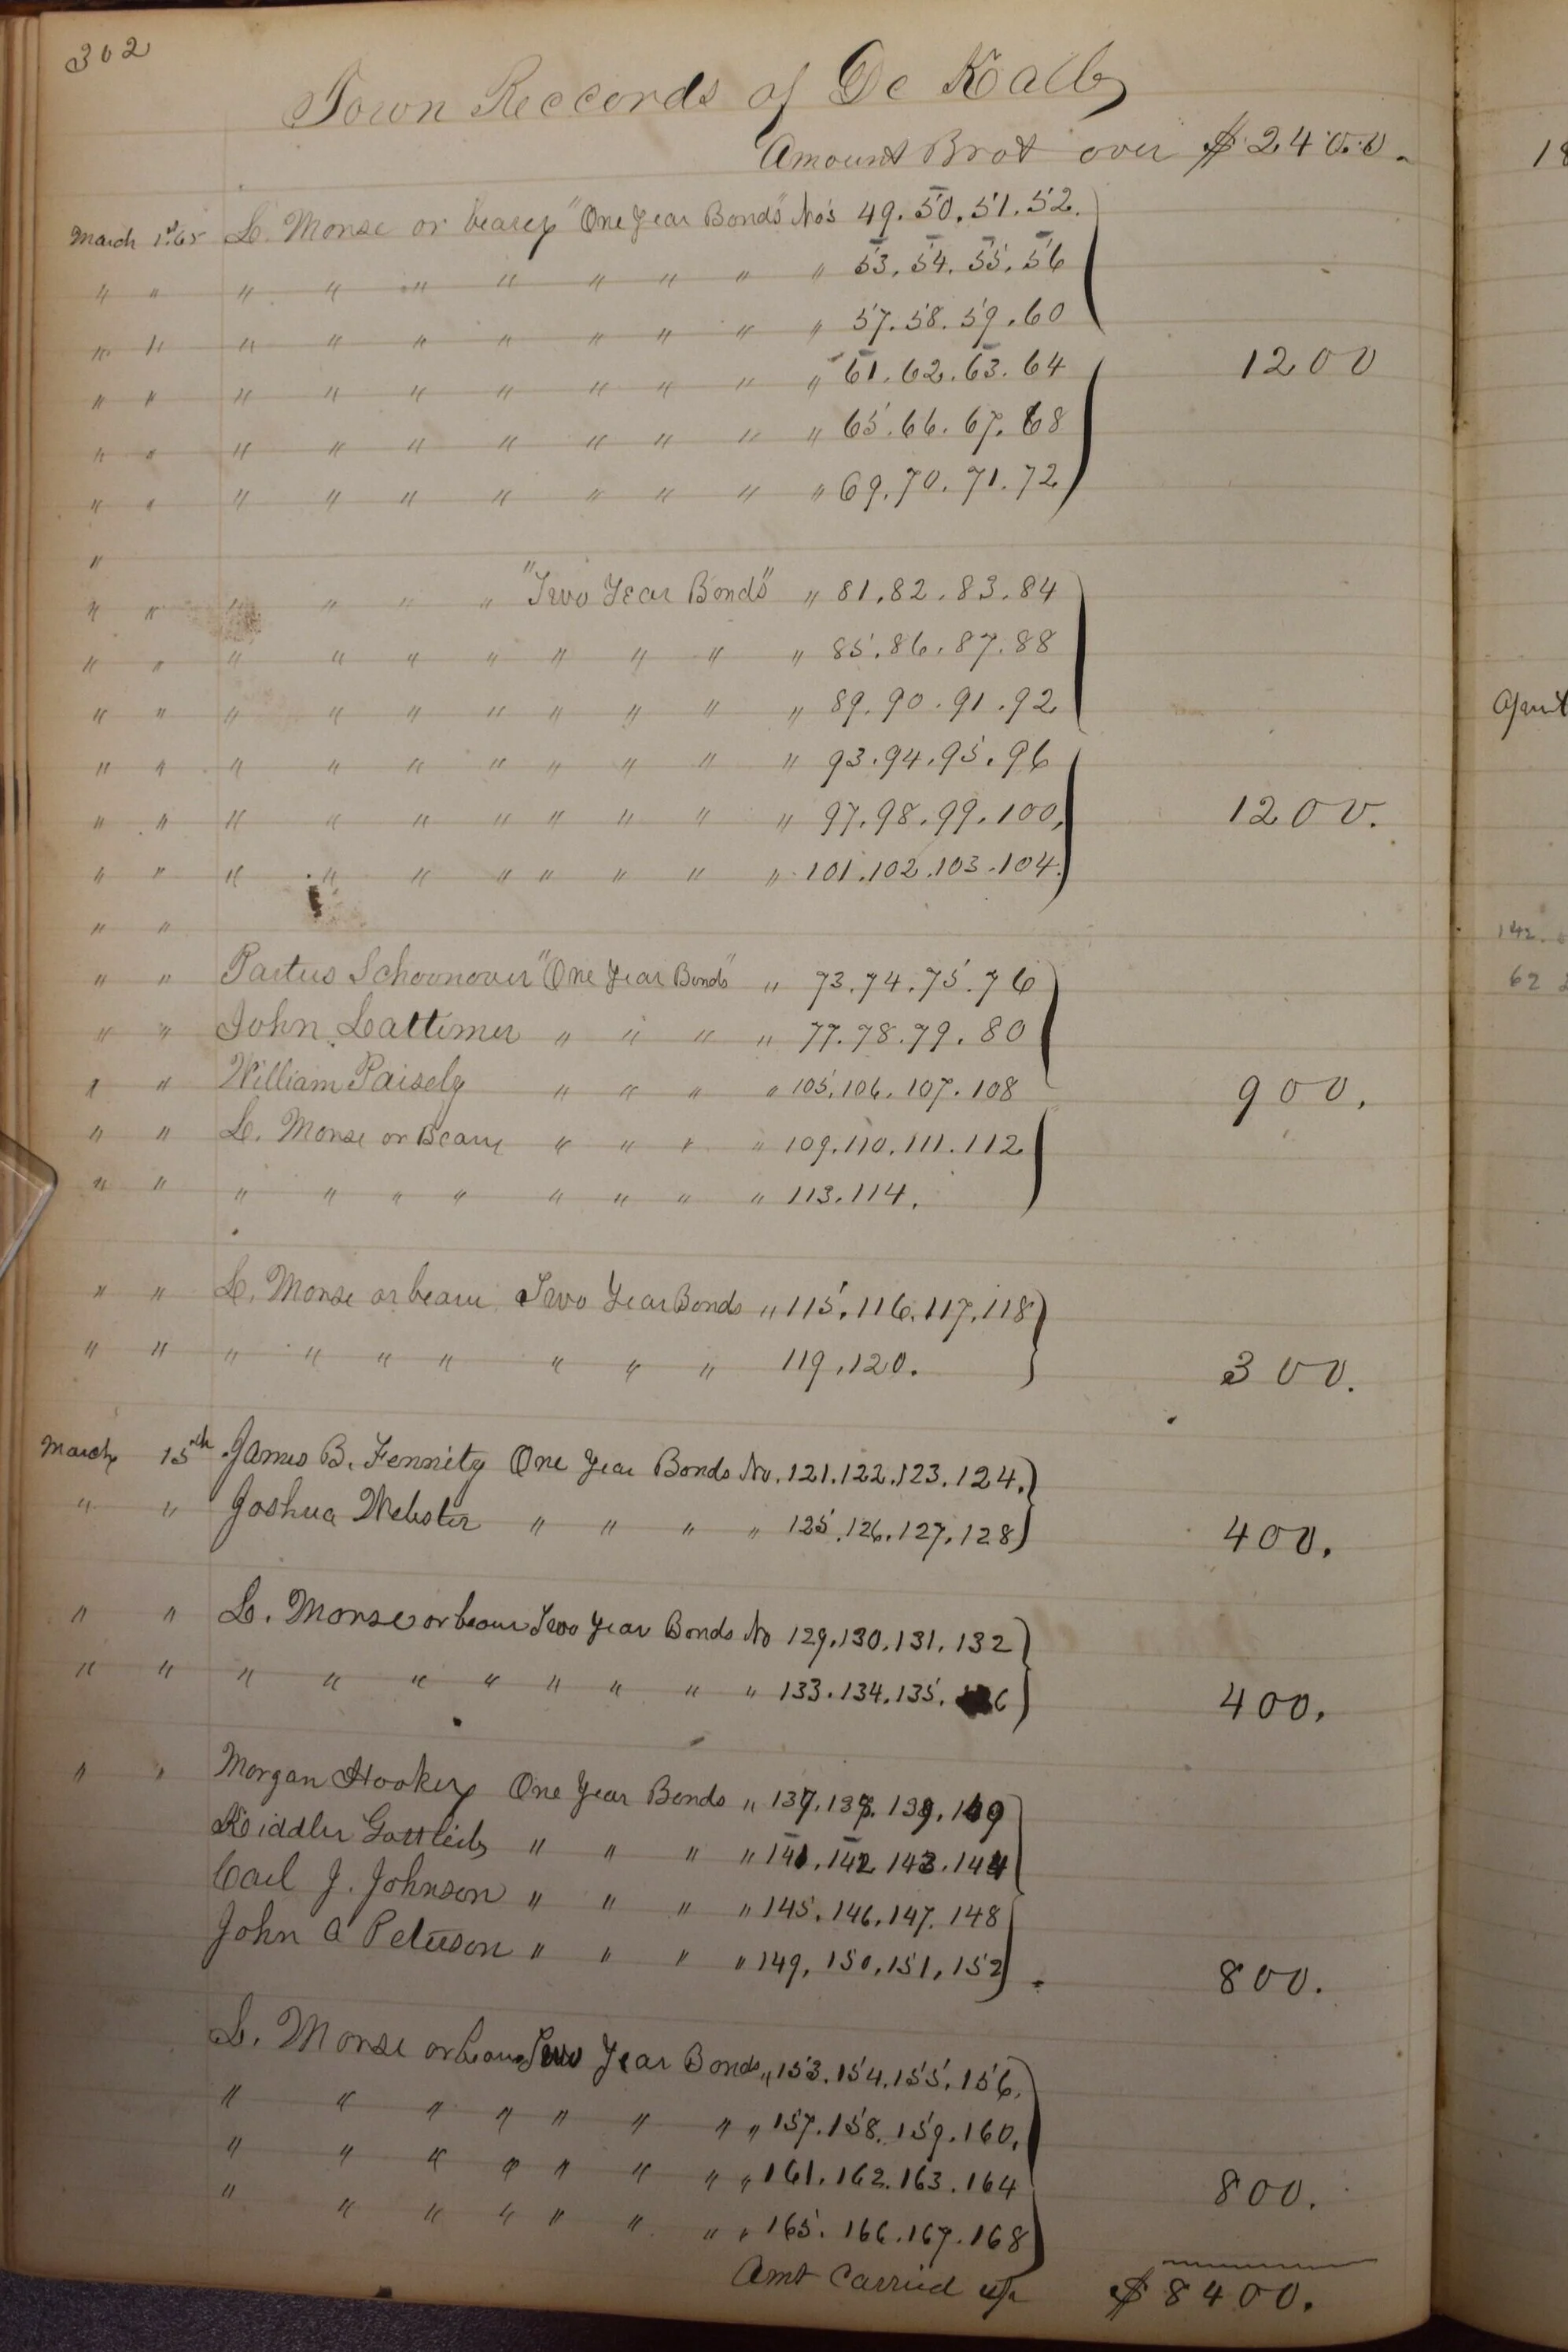 302
Town Reccords of De Kalb
Amount Brot over $2400.
March 1st 65 L. Morse or bearer "One Year Bonds" No's 49. 50. 51. 52.
" " " " " " " " " " 53. 54. 55. 56
" " " " " " " " " " 57. 58. 59. 60
" " " " " " " " " " 61. 62. 63. 64 1200
" " " " " " " " " " 65. 66. 67. 68
" " " " " " " " " " 69. 70. 71. 72
"
" " " " " " "Two Year Bonds" " 81. 82. 83. 84
" " " " " " " " " " 85. 86. 87. 88
" " " " " " " " " " 89. 90. 91. 92
" " " " " " " " " " 93. 94. 95. 96
" " " " " " " " " " 97. 98. 99. 100, 1200.
" " " " " " " " " " 101. 102. 103. 104.
" "
" " Schoonover "One Year Bonds" " 73. 74. 75. 76
" " John Lattimer " " " " 77. 78. 79. 80
" " William Paisely " " " " 105. 106. 107. 108 900.
" " L. Morse or Bearer " " " " 109. 110. 111. 112
" " " " " " " " " " 113. 114.
" " L. Morse or bearer Two Year Bonds " 115. 116. 117. 118
" " " " " " " " " 119. 120. 300.
March 15th James B. Fennity One Year Bonds No. 121. 122. 123. 124.
" " Joshua Webster " " " " 125. 126. 127. 128 400.
" " L. Morse or bearer Two Year Bonds No 129. 130. 131. 132
" " " " " " " " " " 133. 134. 135. 136 400.
" " Morgan Hooker One Year Bonds " 137. 138. 139.
Kiddler Gottleib " " " " 141. 142. 143. 144
Carl J. Johnson " " " " 145. 146. 147. 148
John A Peterson " " " " 149. 150. 151. 152 800.
L. Morse or bearer Two Year Bonds " 153. 154. 155. 156.
" " " " " " " " 157. 158. 159. 160.
" " " " " " " " 161. 162. 163. 164 800.
" " " " " " " " 165. 166. 167. 168
Amt Carried up $8400.
18
142.
62